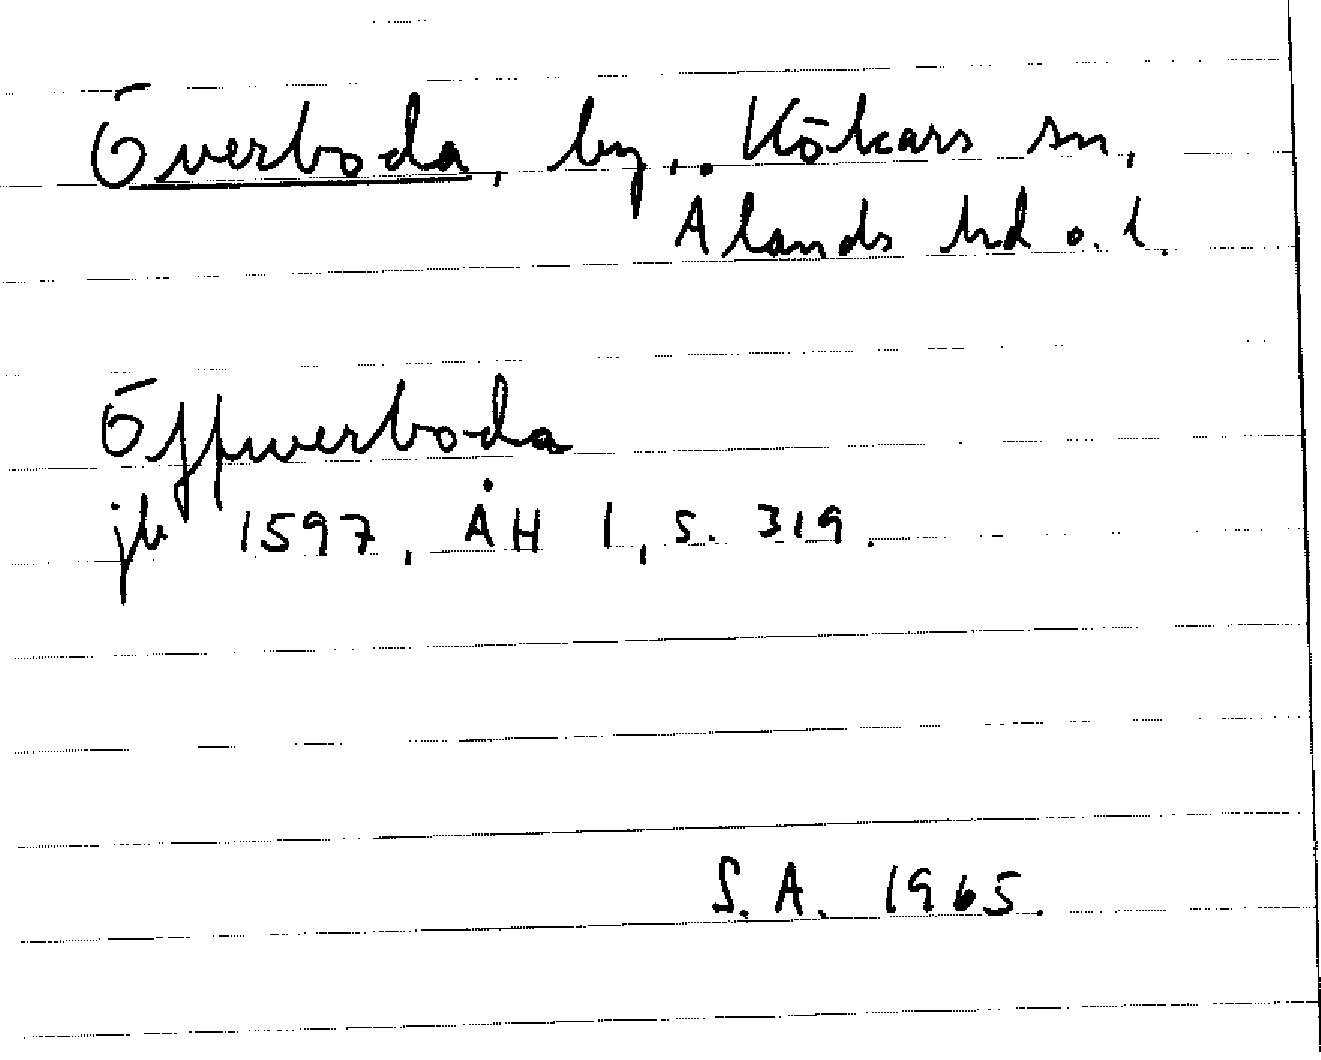 Överboda, by, Kökars sn,
Ålands hd o. l.
Öffwerboda
jb 1597, ÅH I, s. 319.
S.A. 1965.